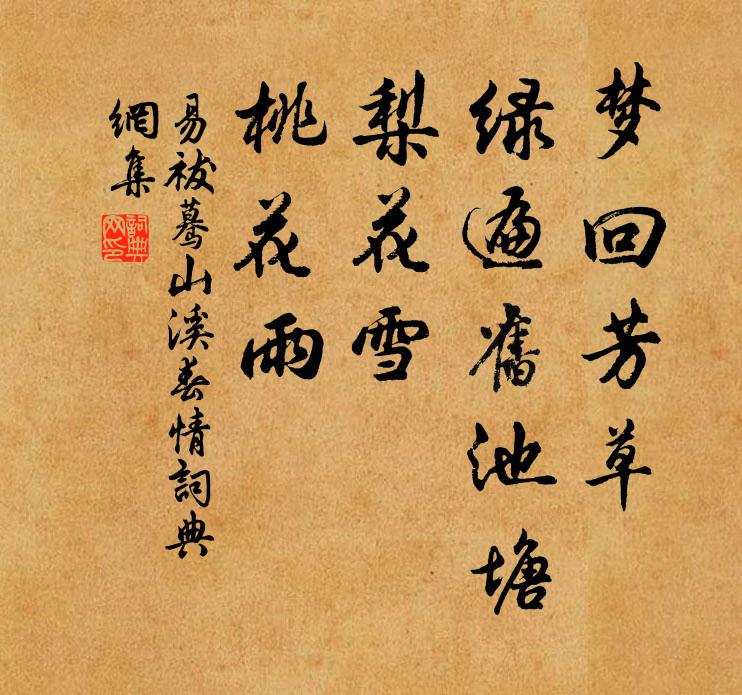 梦回芳草
绿遍舊池塘
梨花雪
桃花雨
易祓蓦山溪春情詞典
網集
詞典
网印